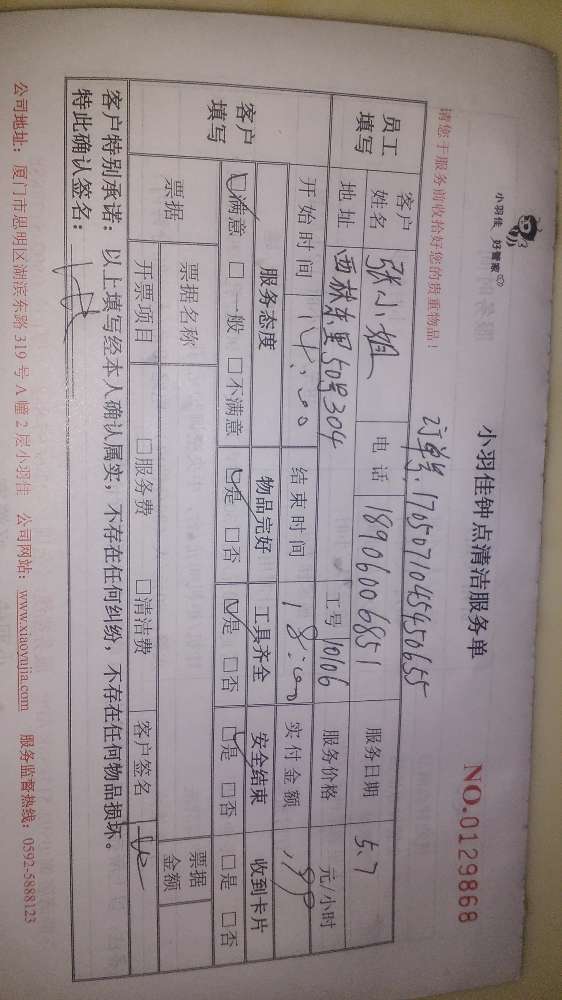 小羽佳 好管家
小羽佳钟点清洁服务单
NO.0129868
请您于服务前收拾好您的贵重物品!
订单号:1705071045450655
员工填写
客户姓名 张小姐 电话 18906006851 服务日期 5.7
地址 西林东里50号304 工号 10106 服务价格 元/小时
开始时间 14:00 结束时间 18:00 实付金额
客户填写
服务态度 物品完好 工具齐全 安全结束 收到卡片
☑满意 □一般 □不满意 ☑是 □否 ☑是 □否 ☑是 □否 □是 □否
票据 票据名称 票据金额
开票项目 □服务费 □清洁费 客户签名
客户特别承诺:以上填写经本人确认属实,不存在任何纠纷,不存在任何物品损坏。
特此确认签名:
公司地址:厦门市思明区湖滨东路319号A幢2层小羽佳 公司网站:www.xiaoyujia.com 服务监督热线:0592-5888123